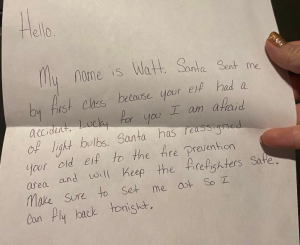 Hello.
My name is Watt. Santa sent me
by first class because your elf had a
accident. Lucky for you I am afraid
of light bulbs. Santa has reassigned
your old elf to the fire prevention
area and will keep the firefighters safe.
Make sure to set me out so I
can fly back tonight.